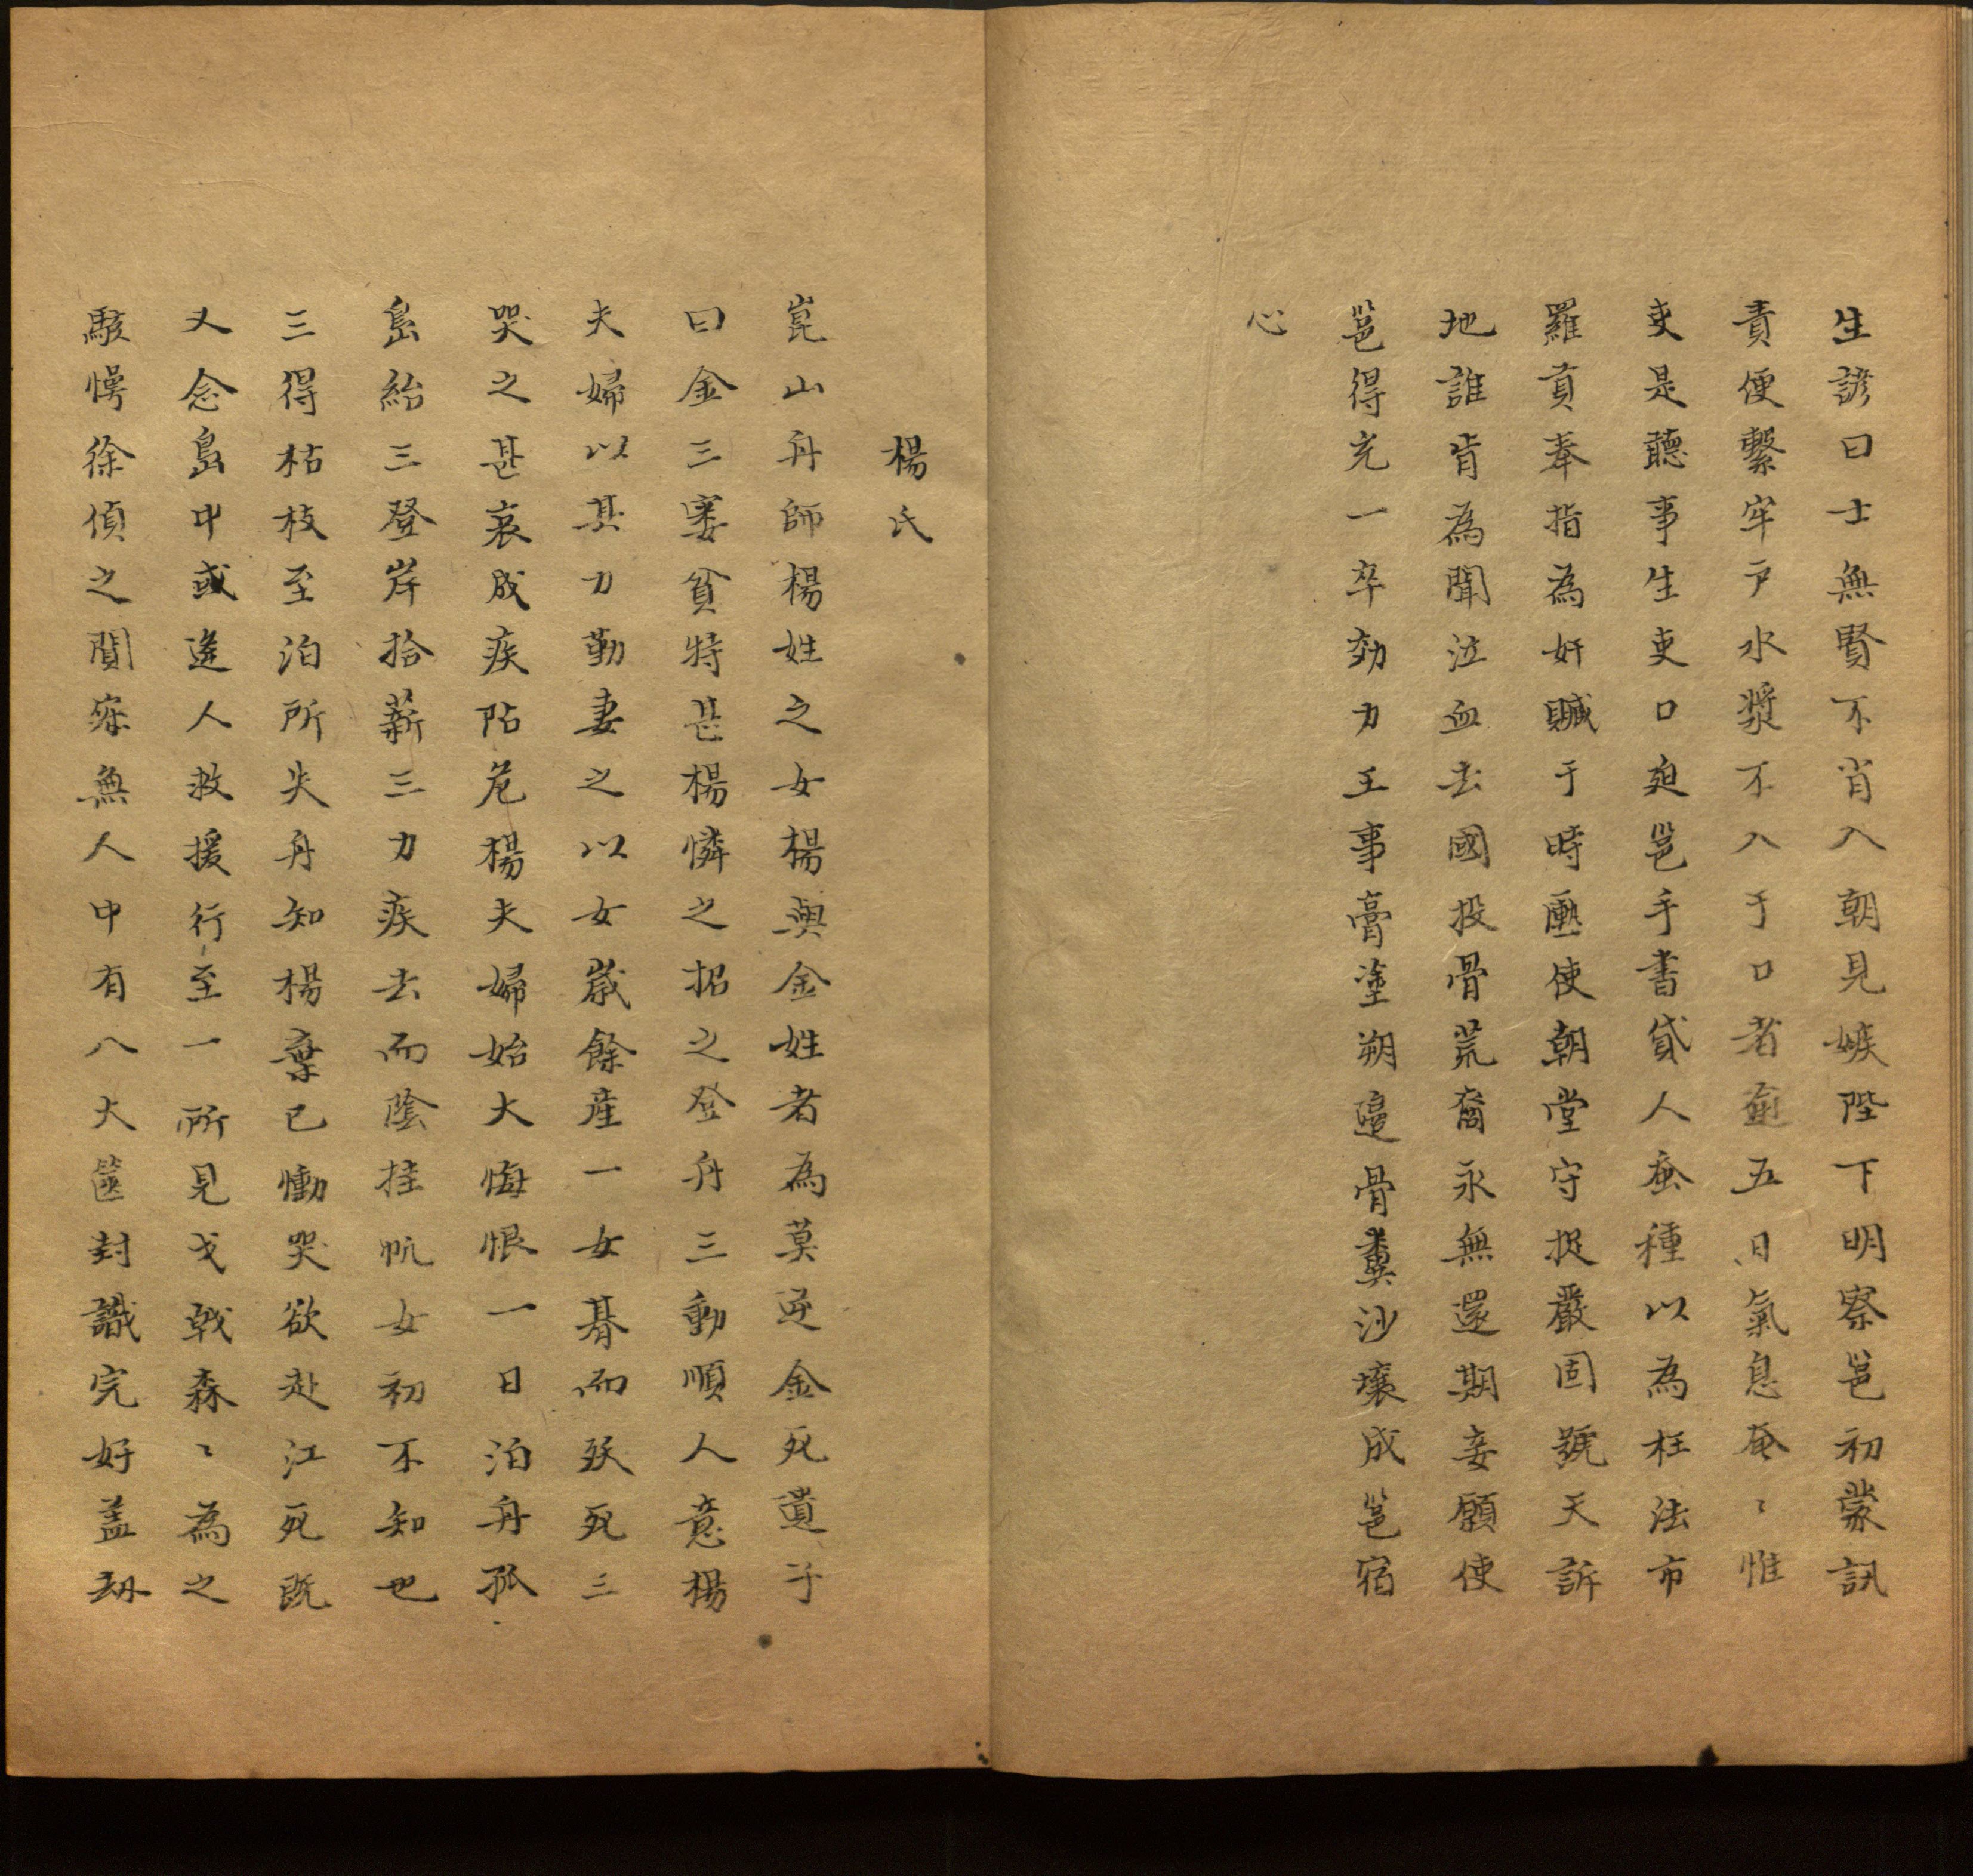 生諺曰士無賢不肖入朝見嫉陛下明察邕初蒙訊
責便繫牢戶水漿不入于口者逾五日氣息奄〻惟
吏是聽事生吏口迫邕手書貸人蚕種以為枉法市
羅貢奉指為奸贓于時匭使朝堂守捉嚴固號天訴
地誰肯為聞泣血去國投骨荒裔永無還期妾願使
邕得充一卒効力王事膏塗朔邊骨糞沙壤成邕宿
心
楊氏
崑山舟師楊姓之女楊與金姓者為莫逆金死遺子
曰金三窶貧特甚楊憐之招之登舟三動順人意楊
夫婦以其力勤妻之以女歲餘產一女朞而殀死三
哭之甚哀成疾阽危楊夫婦始大悔恨一日泊舟孤
島紿三登岸拾薪三力疾去而陰挂帆女初不知也
三得枯枝至泊所失舟知楊棄已慟哭欲赴江死既
又念島中或逢人救援行至一所見戈戟森〻為之
駭愕徐偵之闃寂無人中有八大篋封識完好盖刼